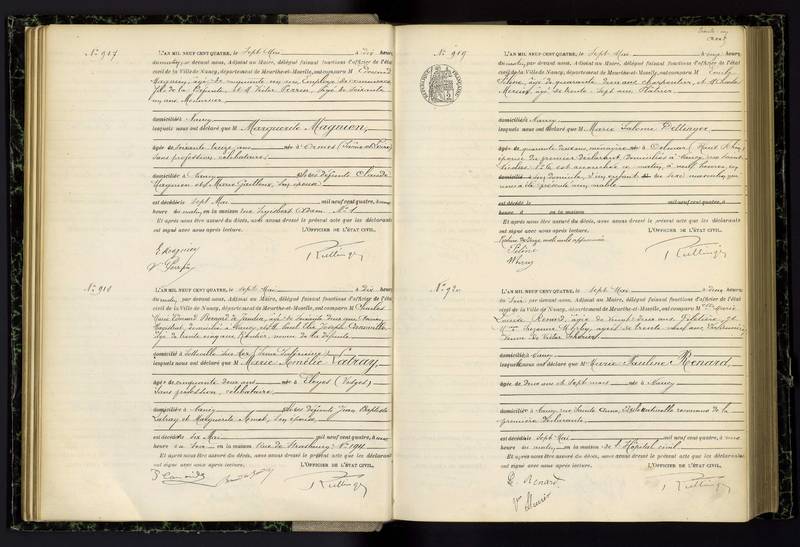 No 917
L'AN MIL NEUF CENT QUATRE, le Sept Mai à dix heures
du matin, par devant nous, Adjoint au Maire, délégué faisant fonctions d'officier de l'état
civil de la Ville de Nancy, département de Meurthe-et-Moselle, ont comparu M Edmond
Magnien, âgé de cinquante un ans, Employé de commerce
fils de la Défunte, et M Victor Perrin, âgé de soixante
un ans Menuisier
domiciliés à Nancy
lesquels nous ont déclaré que M Marguerite Magnien,
âgée de soixante treize ans née à Ormes (Saône et Loire)
Sans profession, célibataire,
domiciliée à Nancy Fille des défunts Claude
Magnien et Marie Guilloux, son épouse
est décédée Sept Mai mil neuf cent quatre, à une
heure du matin, en la maison rue No 1
Et après nous être assuré du décès, avons dressé le présent acte que les déclarants
ont signé avec nous après lecture. L'OFFICIER DE L'ÉTAT CIVIL,
E Magnien
No 918
L'AN MIL NEUF CENT QUATRE, le Sept Mai à dix heures
du matin, par devant nous, Adjoint au Maire, délégué faisant fonctions d'officier de l'état
civil de la Ville de Nancy, département de Meurthe-et-Moselle, ont comparu M Charles
Marie Edouard Bernard de Jandin, âgé de soixante deux ans
domicilié à Nancy, et M Paul Elie Joseph
âgé de trente cinq ans neveu de la défunte,
domicilié à
lesquels nous ont déclaré que M Marie Amélie Vatray,
âgée de cinquante deux ans née à Eloyes (Vosges)
Sans profession, célibataire,
domiciliée à Nancy Fille des défunts Jean Baptiste
Vatray et Marguerite son épouse,
est décédée Six Mai mil neuf cent quatre, à
heure du Soir en la maison Rue de Strasbourg No 194
Et après nous être assuré du décès, avons dressé le présent acte que les déclarants
ont signé avec nous après lecture. L'OFFICIER DE L'ÉTAT CIVIL,
No 919
L'AN MIL NEUF CENT QUATRE, le Sept Mai à onze heures
du matin, par devant nous, Adjoint au Maire, délégué faisant fonctions d'officier de l'état
civil de la Ville de Nancy, département de Meurthe-et-Moselle, ont comparu M Emile
âgé de quarante deux ans charpentier, et M Charles
âgé de trente Sept ans
domiciliés à Nancy
lesquels nous ont déclaré que M Marie Salomé
âgée de quarante deux ans, ménagère née à Colmar (Haut Rhin)
épouse du premier déclarant domiciliés à Nancy, rue Saint
Nicolas est accouchée ce matin, à neuf heures, en
domicilié à son domicile, d'un enfant du sexe masculin, qui
nous a été présenté sans vie
est décédé le mil neuf cent quatre, à
heure d en la maison
Et après nous être assuré du décès, avons dressé le présent acte que les déclarants
ont signé avec nous après lecture. L'OFFICIER DE L'ÉTAT CIVIL,
No 920
L'AN MIL NEUF CENT QUATRE, le Sept Mai à deux heures
du Soir par devant nous, Adjoint au Maire, délégué faisant fonctions d'officier de l'état
civil de la Ville de Nancy, département de Meurthe-et-Moselle, ont comparu Melle Marie
Louise Renard, âgée de vingt deux ans et
Mme Suzanne âgée de trente neuf ans
de Victor
domiciliées à Nancy
lesquelles nous ont déclaré que Melle Marie Pauline Renard,
âgée de deux ans et Sept mois née à Nancy
domiciliée à Nancy, rue Sainte Anne, fille naturelle reconnue de la
première déclarante
est décédée Sept Mai mil neuf cent quatre, à une
heure du matin, en la maison de l'Hôpital civil
Et après nous être assuré du décès, avons dressé le présent acte que les déclarantes
ont signé avec nous après lecture. L'OFFICIER DE L'ÉTAT CIVIL,
Renard